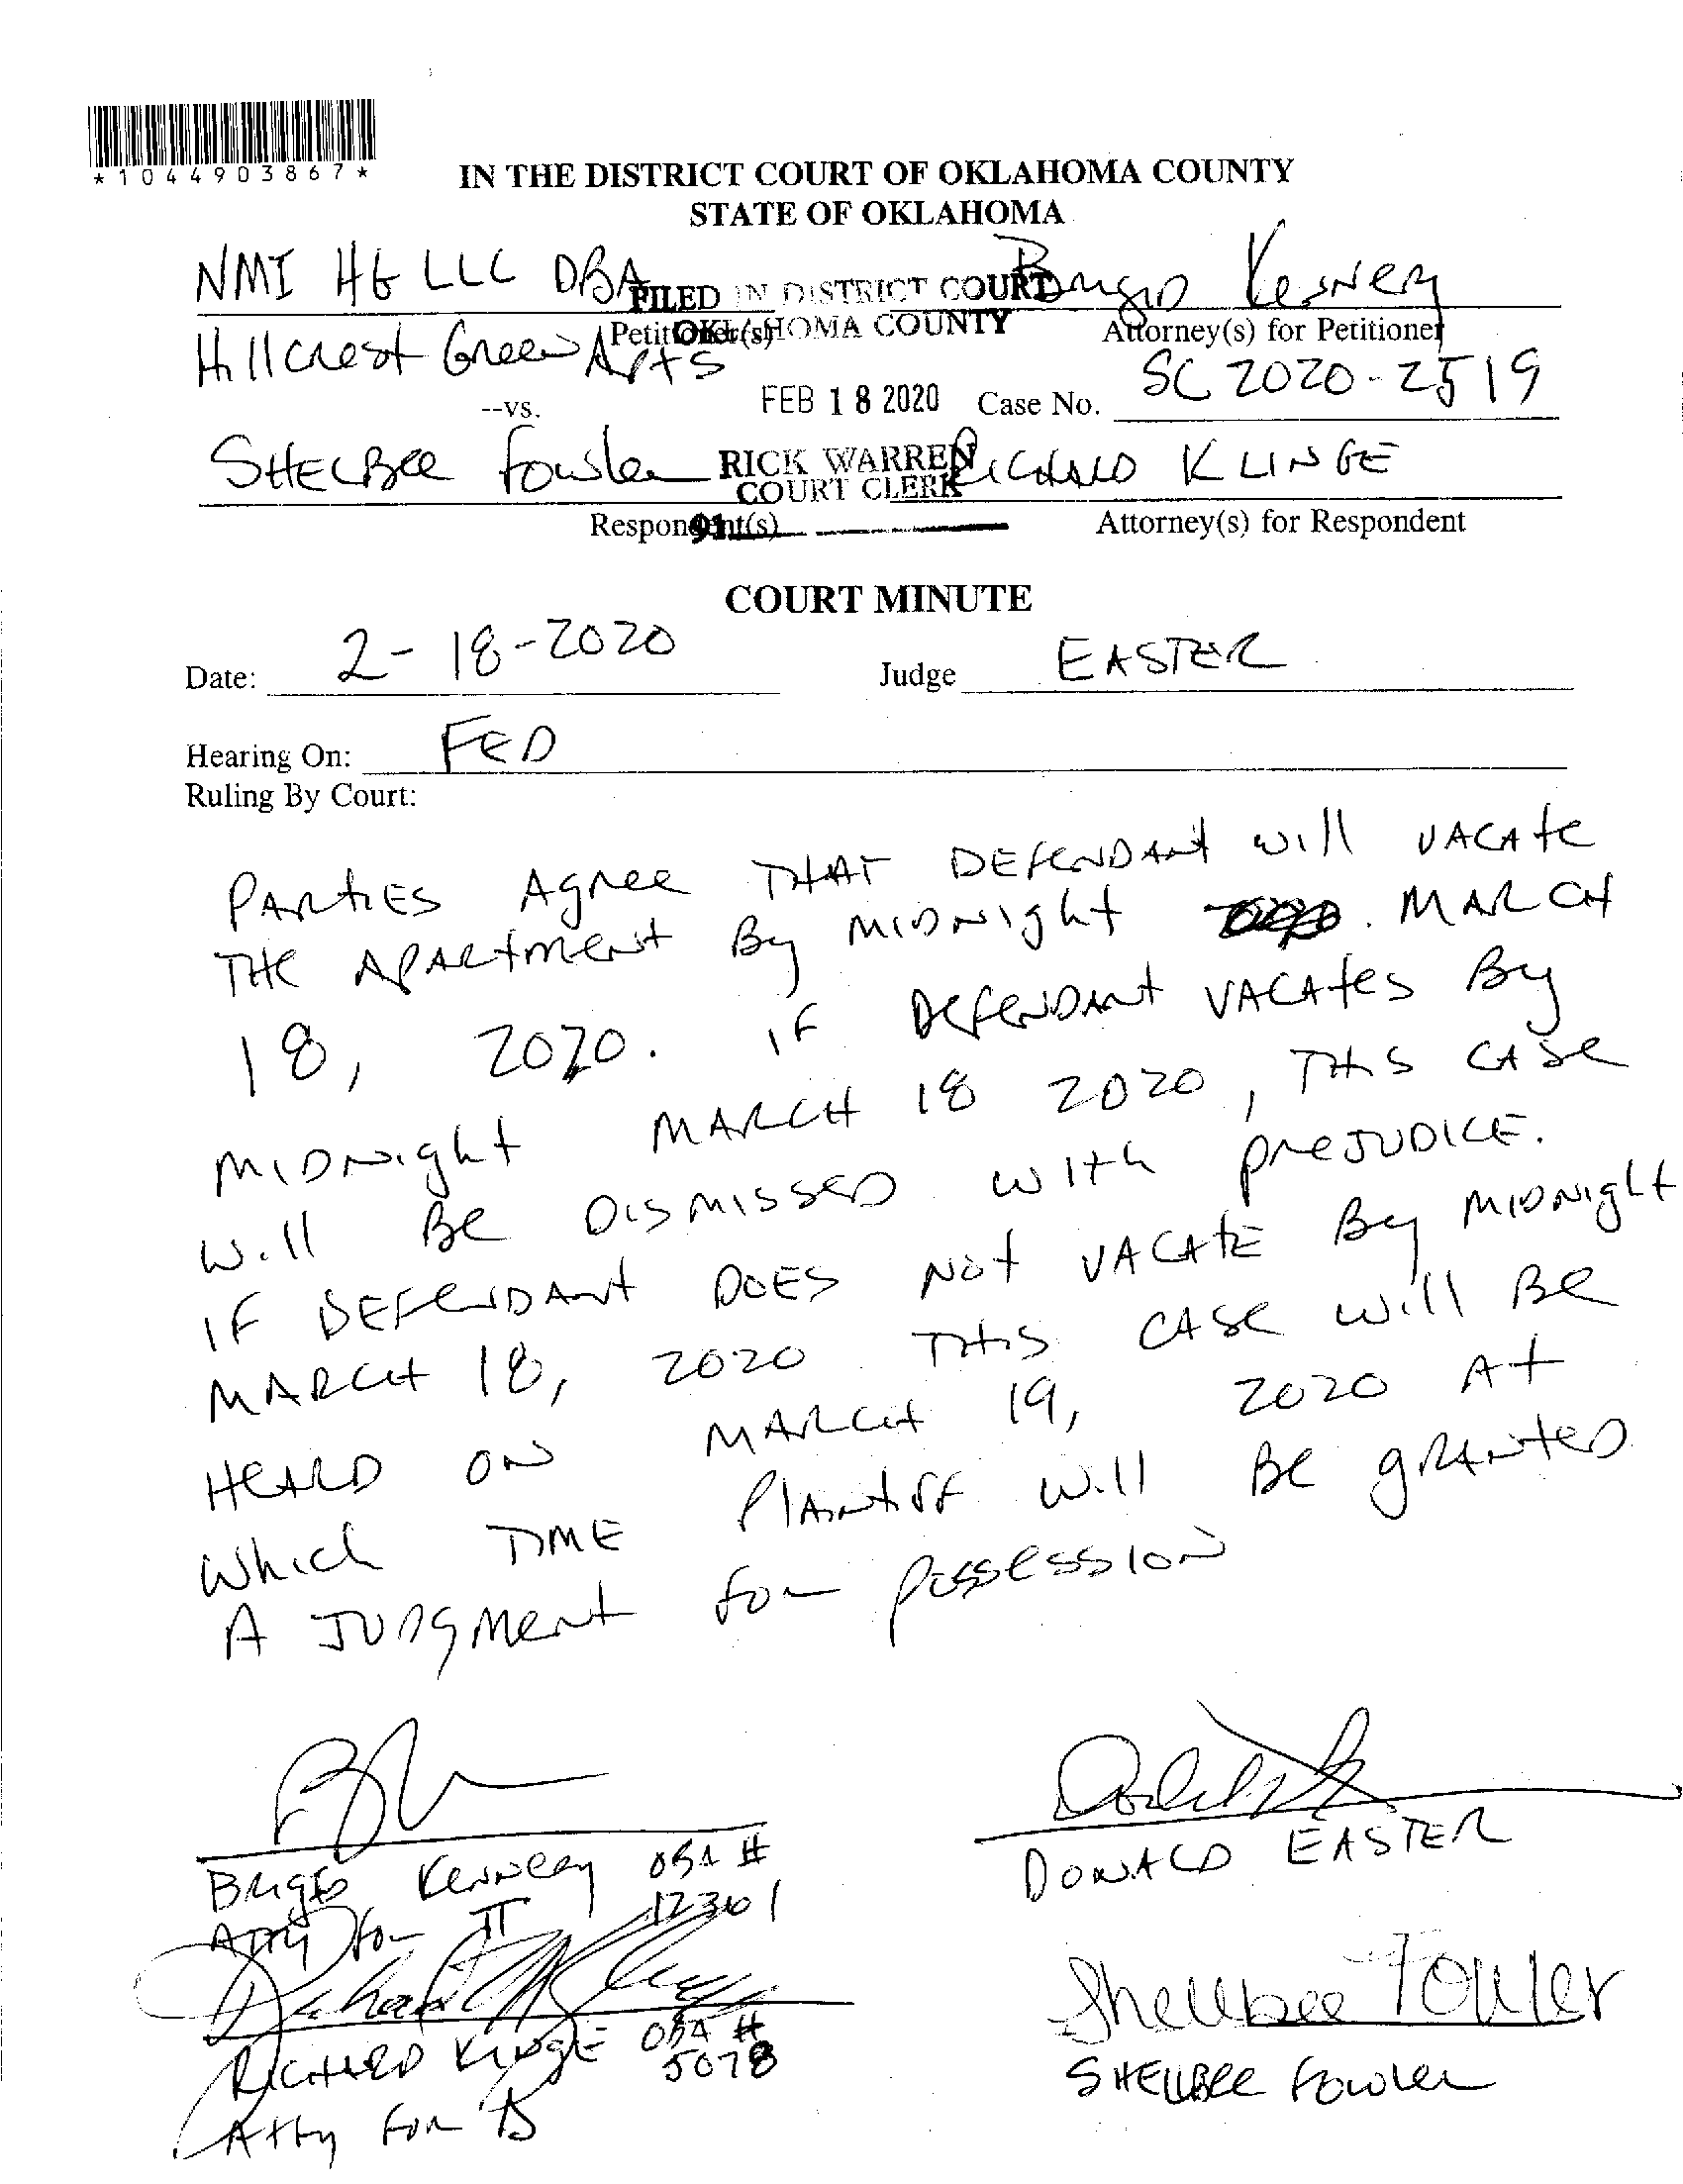 *1044903867*
IN THE DISTRICT COURT OF OKLAHOMA COUNTY
STATE OF OKLAHOMA
NMI HG LLC DBA
Briggs Kenney
FILED IN DISTRICT COURT
OKLAHOMA COUNTY
Petitioner(s)
Attorney(s) for Petitioner
Hillcrest Green Apts
--vs.
FEB 18 2020
Case No. SC 2020-2519
SHELBee Fowler
RICK WARREN
COURT CLERK
RICHARD KLINGE
Respondent(s)
91
Attorney(s) for Respondent
COURT MINUTE
Date: 2-18-2020 Judge EASTER
Hearing On: FED
Ruling By Court:
PARTIES Agree THAT DEFENDANT will VACATE
THE APARTMENT By MIDNIGHT MARCH
18, 2020. IF DEFENDANT VACATES By
MIDNIGHT MARCH 18 2020, THIS CASE
will Be DISMISSED WITH PREJUDICE.
IF DEFENDANT DOES NOT VACATE By MIDNIGHT
MARCH 18, 2020 THIS CASE will BE
HEARD ON MARCH 19, 2020 At
which TIME Plaintiff will BE granted
A JUDGMENT for possession
Briggs Kenney OBA #
12361
Atty for π
DONALD EASTER
RICHARD KLINGE OBA #
5078
Atty for Δ
Shellbee Fowler
SHELLBee Fowler